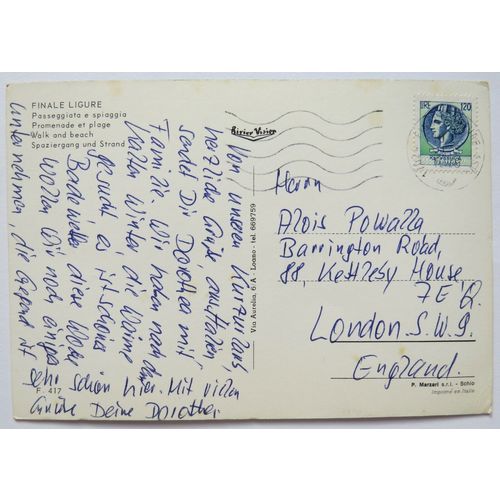 FINALE LIGURE
Passeggiata e spiaggia
Promenade et plage
Walk and beach
Spaziergang und Strand
LIRE 120
Herrn
Alois Powalla
Barrington Road,
88, Kettleby House,
London S.W.9.
England.
Von unserem Kurzurlaub,
herzliche Grüße, aus Italien,
sendet Dir Dorothea mit
Familie. Wir haben nach dem
kalten Winter, die Wärme
gesucht, es ist schönes
Badewetter, diese Woche
wollen Wir noch einiges
unternehmen, die Gegend ist
sehr schön hier. Mit vielen
Grüße Deine Dorothea
Via Aurelia, 6 A - Loano - tel. 669759
F. 417
P. Marzari s.r.l. - Schio
Imprimé en Italie